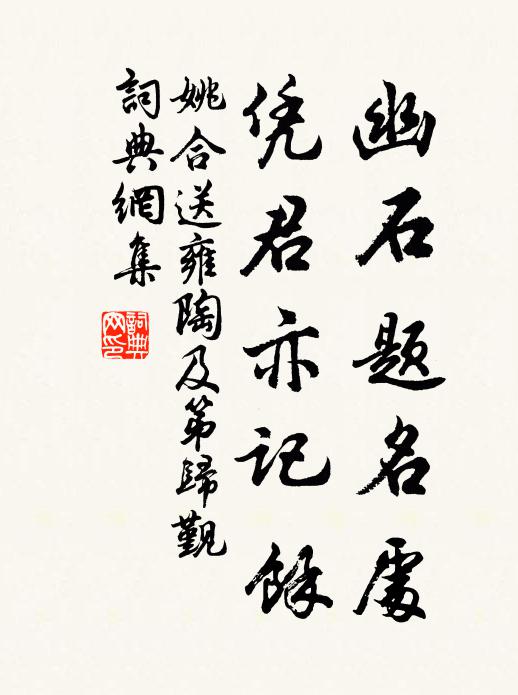 幽石题名處
凭君亦记餘
姚合送雍陶及第歸觐
詞典網集
詞典网印